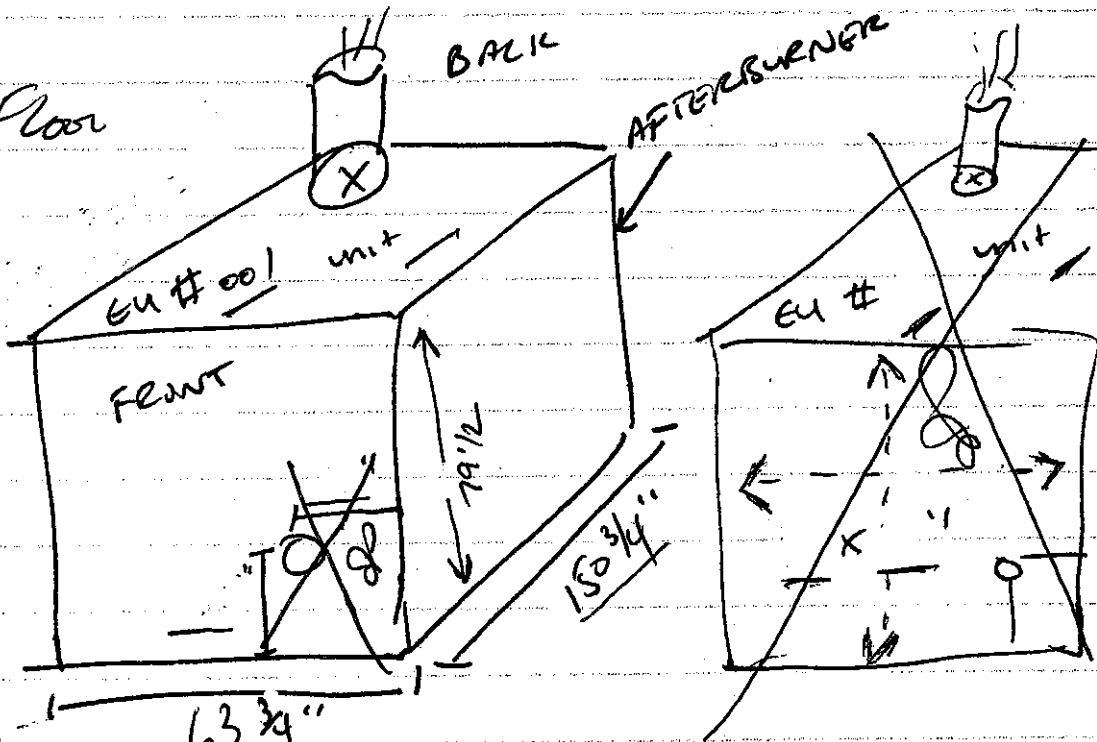 Floor
BACK
AFTERBURNER
X
EU # 001 unit
FRONT
79 1/2
150 3/4"
63 3/4"
X
EU # unit
X "